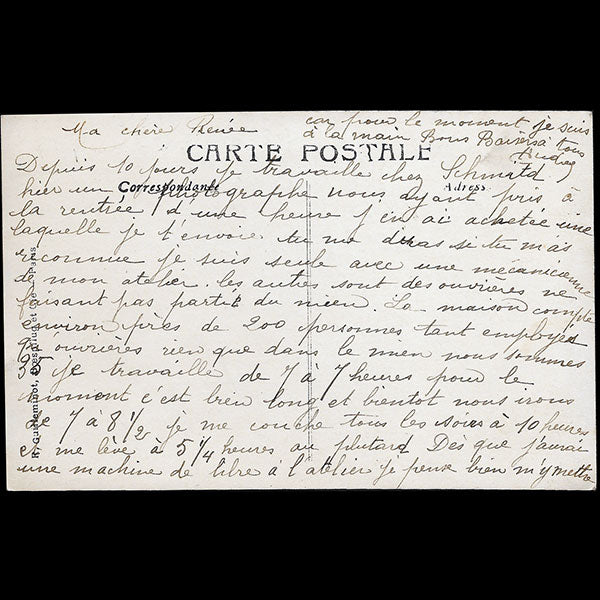 Ma chère Renée
CARTE POSTALE
Correspondance
Adresse
Depuis 10 jours je travaille chez Schmitd
hier un photographe nous ayant pris à
la rentrée d'une heure j'en ai achetée une
laquelle je t'envoie tu me diras si tu m'as
reconnue je suis seule avec une mécanicienne
de mon atelier. les autres sont des ouvrières ne
faisant pas partie du mien. La maison compte
environ près de 200 personnes tant employés
qu'ouvrières rien que dans le mien nous sommes
35 je travaille de 7 à 7 heures pour le
moment c'est bien long et bientôt nous irons
de 7 à 8 1/2 je me couche tous les soirs à 10 heures
et me lève à 5 1/4 heures au plutard Dès que j'aurai
une machine de libre à l'atelier je peux bien m'y mettre
car pour le moment je suis
à la main Bons Baisers à tous
R. Guilleminot, Boespflug et Cie - Paris